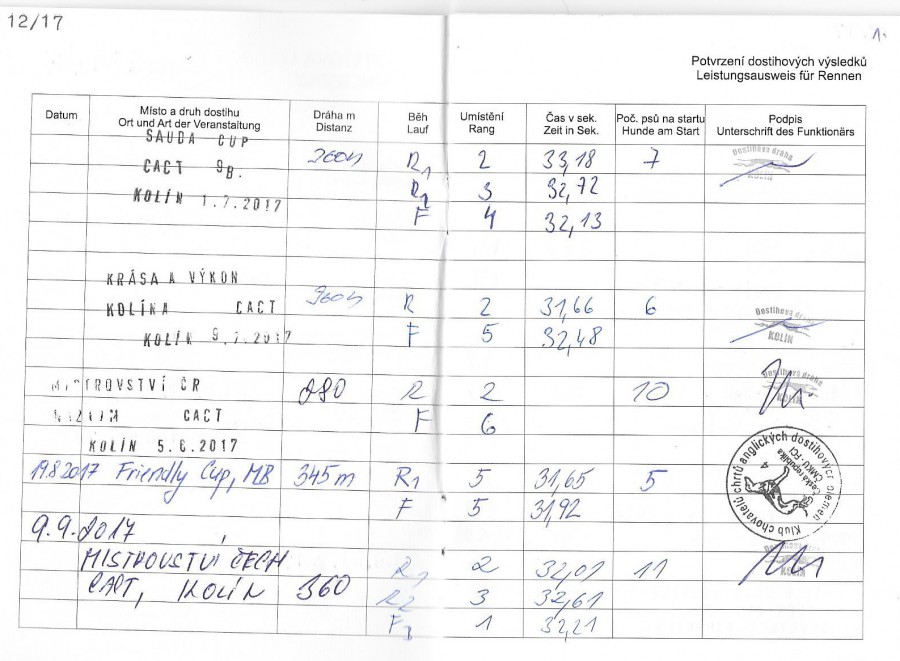 12/17
1.
Potvrzení dostihových výsledků
Leistungsausweis für Rennen
Datum
Místo a druh dostihu
Ort und Art der Veranstaltung
Dráha m
Distanz
Běh
Lauf
Umístění
Rang
Čas v sek.
Zeit in Sek.
Poč. psů na startu
Hunde am Start
Podpis
Unterschrift des Funktionärs
SAUDA CUP 360m R1 2 33,18 7 Dostihová dráha
CACT 9B. R2 3 32,72 KOLÍN
KOLÍN 1.7.2017 F 4 32,13
KRÁSA A VÝKON
KOLÍNA CACT 360m R 2 31,66 6 Dostihová dráha
KOLÍN 9.7.2017 F 5 32,48 KOLÍN
MISTROVSTVÍ ČR 280 R 2 10 Dostihová dráha
CACT F 6
KOLÍN 5.8.2017
19.8.2017 Friendly Cup, MB 345m R1 5 31,65 5
F 5 31,92
Klub chovatelů chrtů anglických dostihových plemen
Česká republika
ČMKU - FCI
4
9.9.2017
MISTROVSTVÍ ČECH R1 2 32,01 11 KOLÍN
CACT, KOLÍN 360 R2 3 32,61
F1 1 32,21